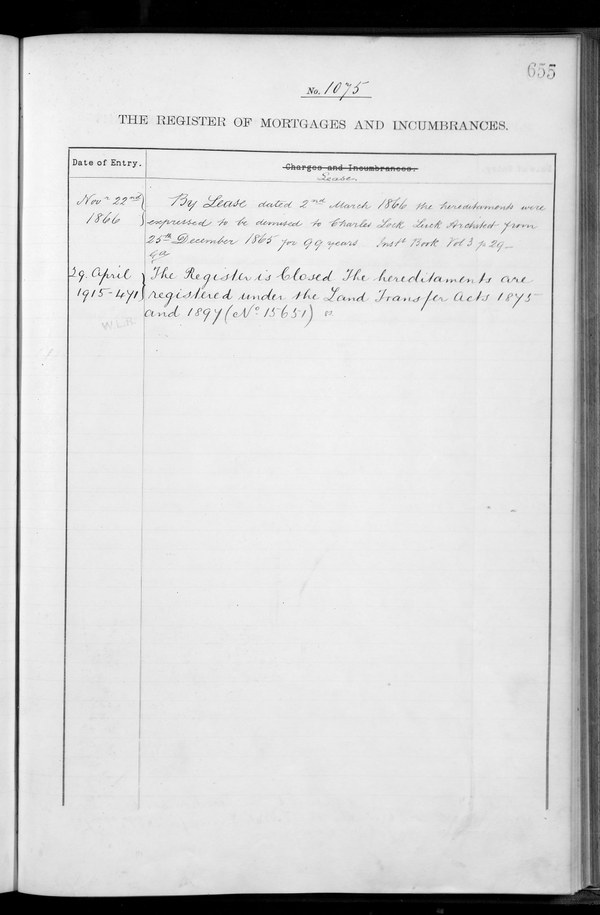 655
No. 1075
THE REGISTER OF MORTGAGES AND INCUMBRANCES.
Date of Entry.
Charges and Incumbrances.
Leases
Novr 22nd
1866
By Lease dated 2nd March 1866 the hereditaments were
expressed to be demised to Charles Lock Luck Architect from
25th December 1865 for 99 years Inst Book Vol 3 p 29
29. April
1915-471
The Register is Closed The hereditaments are
registered under the Land Transfer Acts 1875
and 1897 (No 15651)
W.L.R.